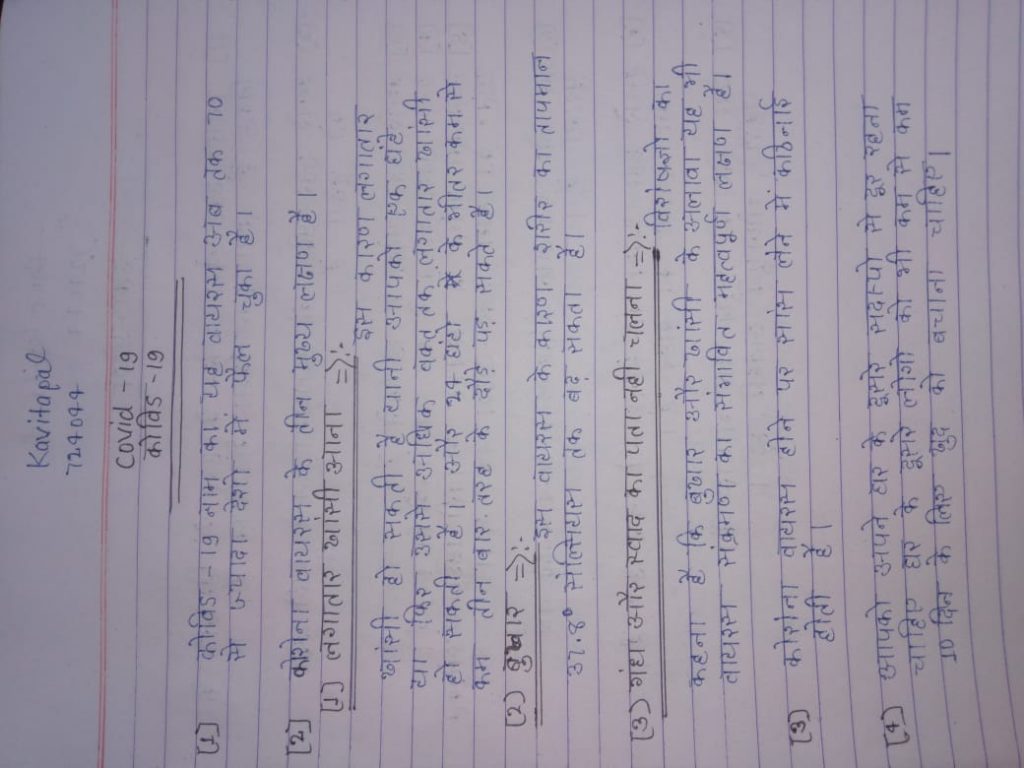 Kavitapal
724044
Covid - 19
कोविड -19
[1] कोविड :- 19 नाम का यह वायरस अब तक 70
से ज्यादा देशो में फैल चुका है।
[2] कोरोना वायरस के तीन मुख्य लक्षण है।
(1) लगातार खांसी आना =>:-
इस कारण लगातार
खांसी हो सकती है यानी आपको एक घंटे
या फिर उससे अधिक वक्त तक लगातार खांसी
हो सकती है। और 24 घंटो के भीतर कम से
कम तीन बार तरह के दौरे पड़ सकते है।
(2) बुखार =>:-
इस वायरस के कारण शरीर का तापमान
37.8° सेल्सियस तक बढ़ सकता है।
(3) गंध और स्वाद का पता नही चलना =>:-
विशेषज्ञो का
कहना है कि बुखार और खांसी के अलावा यह भी
वायरस संक्रमण का संभावित महत्वपुर्ण लक्षण है।
[3] कोरोना वायरस होने पर सांस लेने में कठिनाई
होती है।
[4] आपको अपने घर के दूसरे सदस्यो से दूर रहना
चाहिए घर के दूसरे लोगो को भी कम से कम
10 दिन के लिए खुद को बचाना चाहिए।